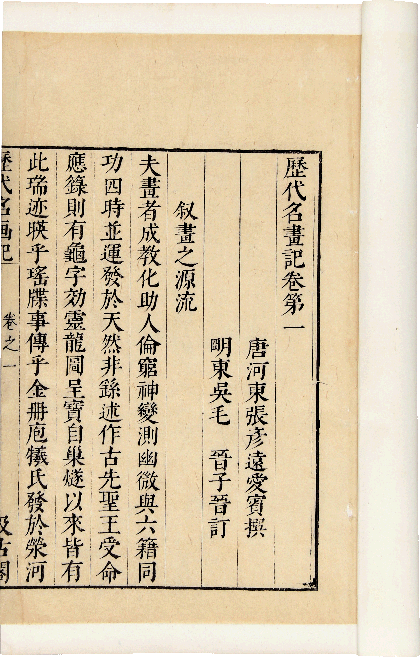 歷代名畫記卷第一
唐河東張彥遠愛賓撰
明東吳毛　晉子晉訂
叙畫之源流
夫畫者成教化助人倫窮神變測幽微與六籍同
功四時並運發於天然非繇述作古先聖王受命
應籙則有龜字効靈龍圖呈寶自巢燧以來皆有
此瑞迹暎乎瑤牒事傳乎金冊庖犧氏發於滎河
歷代名画記　卷之一　汲古閣